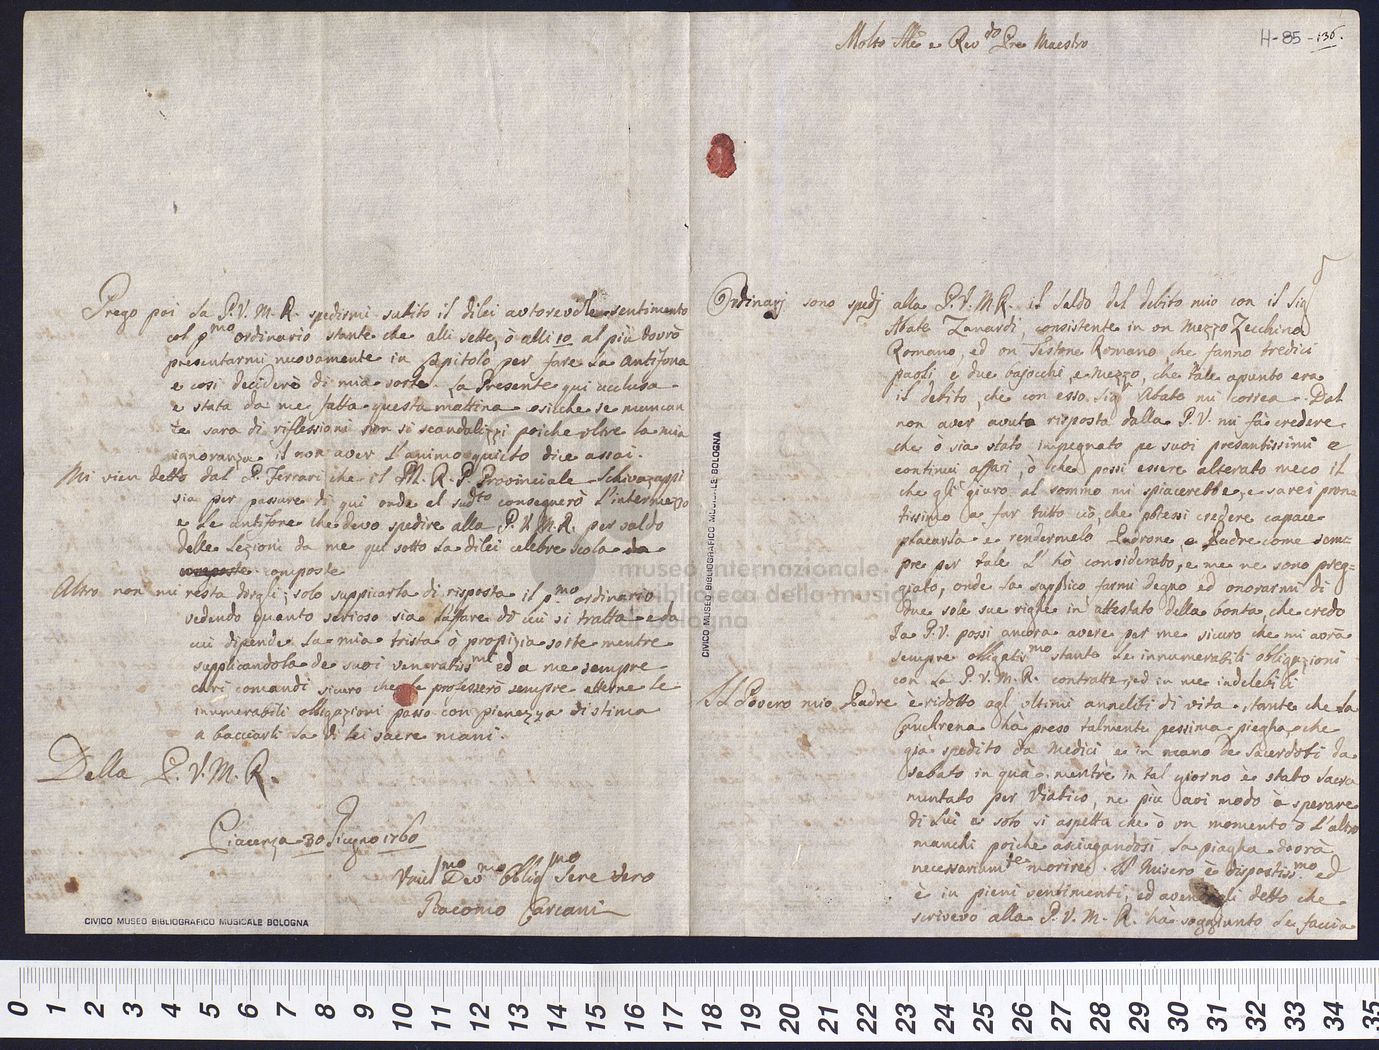 H-85-136.
Molto Ille e Revdo Pre Maestro
Ordinarj sono spedj alla P.V.M.R. il saldo del debito mio con il Sig
Abate Zanardi, consistente in un mezzo Zecchino
Romano, ed un Testone Romano, che fanno tredici
paoli e due bajocchi, e mezzo, che tale apunto era
il debito, che con esso Sig Abate mi correa. Dal
non aver avuta risposta dalla P.V. mi fà credere
che ò sia stato impegnato pe suoi pesantissimi e
continui affari, ò che possi essere alterato meco il
che gli giuro al sommo mi spiacerebbe, e sarei prona
tissimo a far tutto ciò, che potessi credere capace
placarla e rendermelo Padrone, e Padre come sem=
pre per tale l'hò considerato, e me ne sono preg=
giato, onde la supplico farmi degno ed onorarmi di
due sole sue righe in attestato della bontà, che credo
la P.V. possi ancora avere per me sicuro che mi avrà
sempre obligatismo stante le innumerabili obligazioni
con la P.V.M.R. contratte, ed in me indelebili
Il Povero mio Padre è ridotto agl'ultimi anneliti di vita, stante che la
Canchrena hà preso talmente pessima piegha, che
già spedito da Medici e in mano de Sacerdoti da
Sabato in quà, mentre in tal giorno è stato Sacra
mentato per Viatico, ne più avi modo à sperare
di lui e solo si aspetta che ò un momento ò l'altro
manchi poiche asciugandosi la piagha dovrà
necessariamte morire. Il Misero è dispostissmo ed
è in pieni sentimenti, ed avendogli detto che
scrivevo alla P.V.M.R. hà soggiunto le faccia
Prego poi la P.V.M.R. spedirmi subito il dilei autorevole sentimento
col pmo ordinario stante che alli sette, ò alli 10 al più dovrò
presentarmi nuovamente in Capitolo per fare la Antifona
e cosi deciderè di mia sorte. La Presente qui acclusa
e stata da me fatta questa mattina osiche se mancan
te sara di riflessioni non si scandalizzi poiche oltre la mia
ignoranza il non aver l'animo quieto dice assai.
Mi vien detto dal P. Ferrari che il M.R.P. Provinciale Schivazappi
sia per passare di qui onde al sudto consegnerò l'intermezzo
e le antifone che devo spedire alla P.V.M.R. per saldo
delle Lezioni da me qui sotto la dilei celebre scola da
composte composte
Altro non mi resta dirgli; solo suppicarla di risposta il pmo ordinario
vedendo quanto serioso sia l'affare di cui si tratta e da
cui dipende la mia trista ò propizia sorte mentre
supplicandola de suoi veneratissmi ed a me sempre
cari comandi sicuro che le professerò sempre etterne le
innumerabili obligazioni passo con pienezza di stima
a bacciarli la di lei sacre mani.
Della P.V.M.R.
Piacenza 30 Giugno 1760
Umilmo Devmo Obligmo Serv vero
Giacomo Carcani
CIVICO MUSEO BIBLIOGRAFICO MUSICALE BOLOGNA
CIVICO MUSEO BIBLIOGRAFICO MUSICALE BOLOGNA
museo internazionale
biblioteca della musica
di bologna
0 1 2 3 4 5 6 7 8 9 10 11 12 13 14 15 16 17 18 19 20 21 22 23 24 25 26 27 28 29 30 31 32 33 34 35